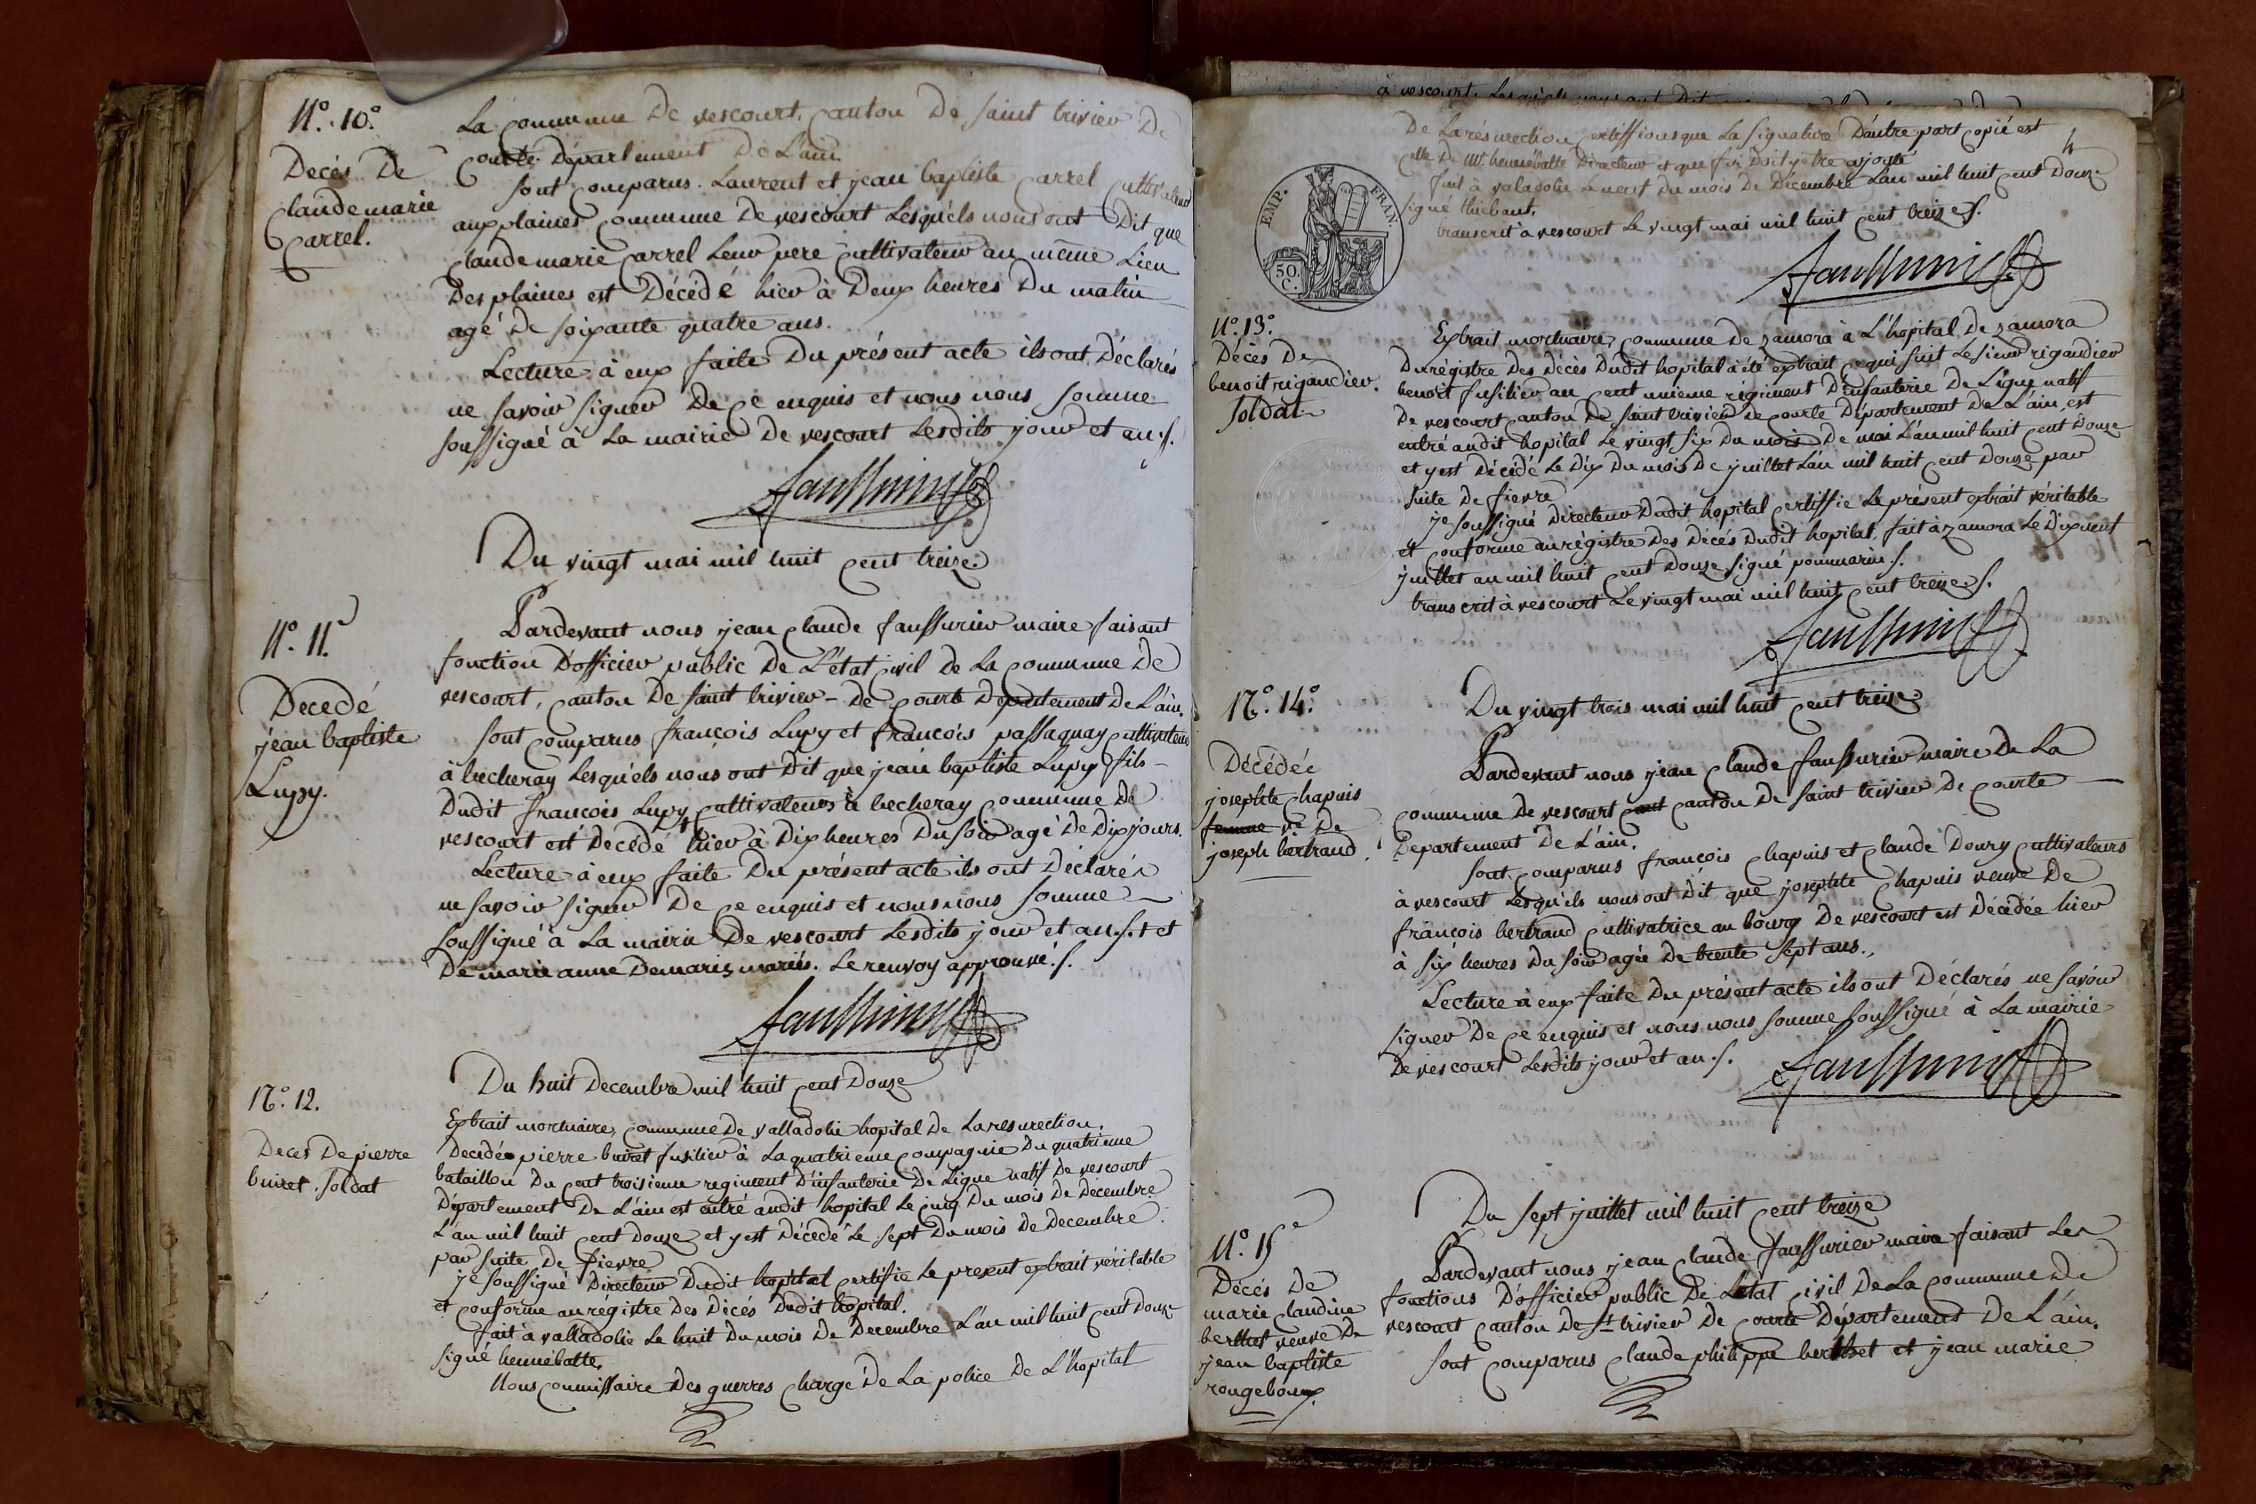 N.° 10.°
Decés De
claude marie
carrel.
La commune De vescourt, canton De saint trivier De
courte Département De L'ain.
sont comparus. Laurent et jean baptiste carrel cultivateurs
aux plaines commune De vescourt Lesquéls nous ont Dit que
claude marie carrel Leur pere cultivateur au même Lieu
Des plaines est Décédé hier à Deux heures Du matin
agé De soixante quatre ans.
Lecture à eux faite Du présent acte ils ont Déclarés
ne savoir signer De ce enquis et nous nous somme
soussigné à La mairie De vescourt Lesdits jour et an ./.
faussurier
Du vingt mai mil huit cent treize.
N.° 11.
Decedé
jean baptiste
Lupy.
Pardevant nous jean claude faussurier maire faisant
fonction D'officier public De L'état civil De La commune De
vescourt, canton De saint trivier - De courte Département De L'ain.
sont comparus françois Lupy et françois passaquay cultivateurs
à becheray Lesquéls nous ont Dit que jean baptiste Lupy fils -
Dudit françois Lupy + cultivateurs à becheray commune De
vescourt est Décédé hier à Dix heures Du soir agé De Dix jours.
Lecture à eux faite Du présent acte ils ont Déclarés
ne savoir signer De ce enquis et nous nous somme
soussigné à La mairie De vescourt Lesdits jour et an ./. + et
De marie anne Demaris mariés. Le renvoy approuvé ./.
faussurier
N.° 12.
Deces De pierre
buiret. soldat
Du huit Decembre mil huit cent Douze
Extrait mortuaire, commune De valladolie hopital De La resurection.
Decédée pierre buiret fusilier à La quatrieme compagnie Du quatrieme
bataillon Du cent troisieme regiment D'infanterie De Ligne natif De vescourt
Département De L'ain est entré audit hopital Le cinq Du mois De Décembre
L'an mil huit cent Douze et y est Décédé Le sept Du mois De Decembre
par suite De fievre
je soussigné Directeur Dudit hopital certifie Le present extrait véritable
et conforme au régistre Des Décés Dudit hopital.
fait à valladolie Le huit Du mois De Decembre L'an mil huit cent Douze
signé hennebatte,
Nous commissaire Des guerres chargé De La police De L'hopital
à vescourt. Lesquéls nous ont Dit
De La résurection certiffions que La signature D'autre part copié est
celle De Mr. hennebatte Directeur et que foi Doit y être ajouté
fait à valadolie Le neuf Du mois De Décembre L'an mil huit cent Douze
signé thiebaut.
transcrit à vescourt Le vingt mai mil huit cent treize ./.
faussurier
4
EMP. FRAN.
50.
C.
N.° 13.°
Décès De
benoit rigaudier.
soldat
Extrait mortuaire, commune De zamora à L'hopital De zamora
Du régistre Des Décés Dudit hopital à été extrait ce qui suit Le sieur rigaudier
benoit fusilier au cent unieme régiment D'infanterie De Ligne natif
De vescourt canton De saint trivier De courte Département De L'ain, est
entré audit hopital Le vingt six Du mois De mai L'an mil huit cent Douze
et y est Décédé Le Dix Du mois De juillet L'an mil huit cent Douze par
suite De fievre
je soussigné Directeur Dudit hopital certiffie Le présent extrait véritable
et conforme au régistre Des Décés Dudit hopital, fait à zamora Le Dix neuf
juillet an mil huit cent Douze signé pommarin ./.
transcrit à vescourt Le vingt mai mil huit cent treize ./.
faussurier
N.° 14.°
Décédée
josephte chapuis
femme ve De
joseph bertrand.
Du vingt trois mai mil huit cent treize
Pardevant nous jean claude faussurier maire De La
commune De vescourt cant canton De saint trivier De courte
Département De L'ain.
sont comparus françois chapuis et claude Doury cultivateurs
à vescourt Lesquéls nous ont Dit que josephte chapuis veuve De
françois bertrand cultivatrice au bourg De vescourt est Décédée hier
à six heures Du soir agée De trente sept ans.,
Lecture à eux faite Du présent acte ils ont Déclarés ne savoir
signer De ce enquis et nous nous somme soussigné à La mairie
De vescourt Lesdits jour et an ./.
faussurier
N.° 15
Décés De
marie claudine
berthet veuve De
jean baptiste
rougeboux.
Du sept juillet mil huit cent treize
Pardevant nous jean claude faussurier maire faisant Les
fonctions D'officier public De L'état civil De La commune De
vescourt canton De st trivier De courte Département De L'ain.
sont comparus claude philippe berthet et jean marie